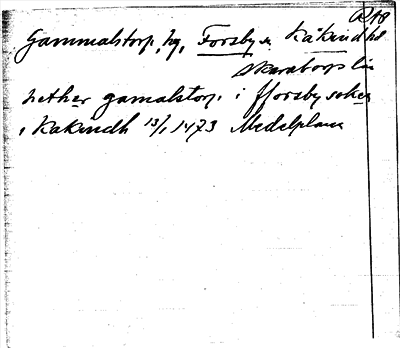 R48
Gammalstorp, hg, Forsby sn Kåkinds hd
Skaraborgs län
hether gamalstorp i fforsby soken
i Kakindh 13/1 1473 Medelplana